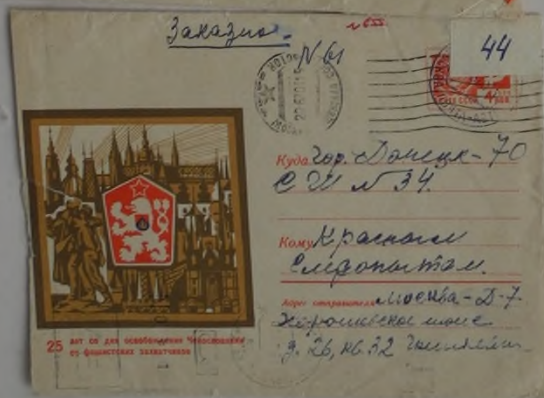 Заказное
N 61
44
Куда гор. Донецк-70
СШ N 34.
Кому Красным
Следопытам.
Адрес отправителя Москва-Д-7
Хорошевское шоссе
д. 26, кв. 32
25 лет со дня освобождения Чехословакии
от фашистских захватчиков